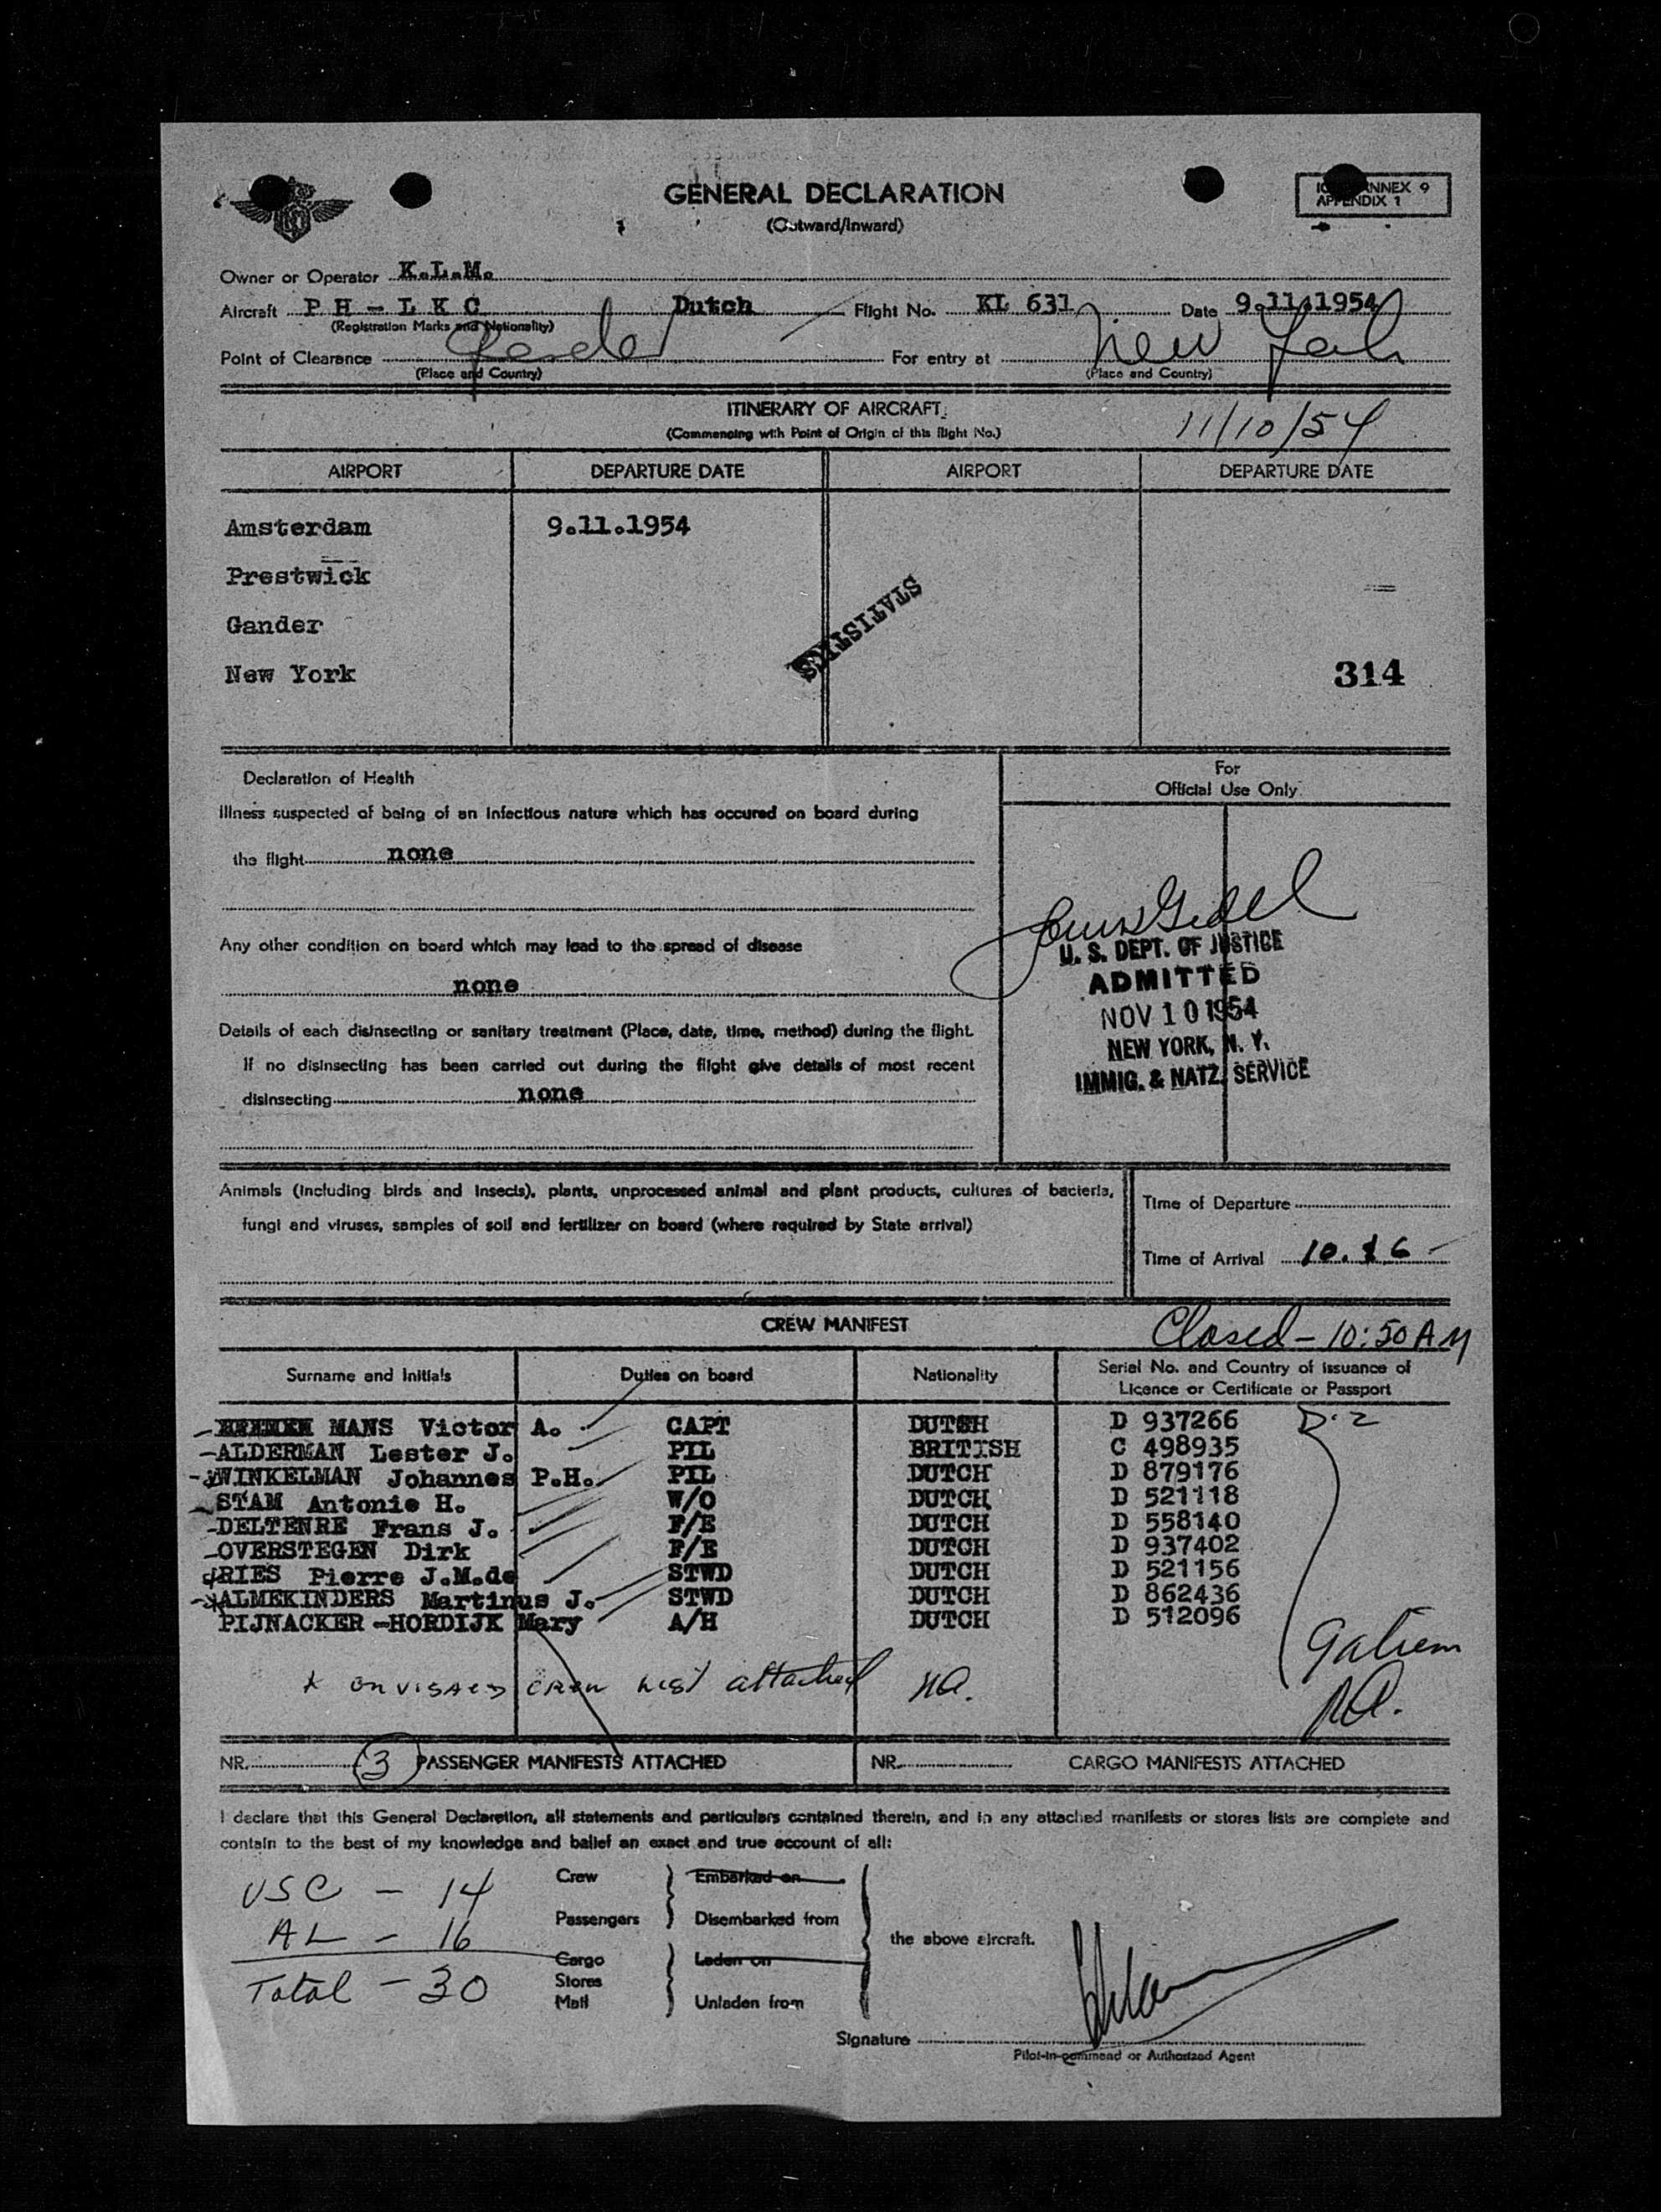 GENERAL DECLARATION
(Outward/Inward)
ANNEX 9
APPENDIX 1
Owner or Operator K.L.M.
Aircraft P H - L K C Dutch Flight No. KL 631 Date 9.11.1954
(Registration Marks and Nationality)
Point of Clearance Gander For entry at New York
(Place and Country) (Place and Country)
ITINERARY OF AIRCRAFT
(Commencing with Point of Origin of this flight No.)
11/10/54
AIRPORT DEPARTURE DATE AIRPORT DEPARTURE DATE
Amsterdam 9.11.1954
Prestwick
Gander
New York
STATISTICS
314
Declaration of Health
Illness suspected of being of an infectious nature which has occured on board during
the flight none
Any other condition on board which may lead to the spread of disease
none
Details of each disinsecting or sanitary treatment (Place, date, time, method) during the flight.
If no disinsecting has been carried out during the flight give details of most recent
disinsecting none
For
Official Use Only
U. S. DEPT. OF JUSTICE
ADMITTED
NOV 10 1954
NEW YORK, N. Y.
IMMIG. & NATZ. SERVICE
Animals (including birds and insects), plants, unprocessed animal and plant products, cultures of bacteria,
fungi and viruses, samples of soil and fertilizer on board (where required by State arrival)
Time of Departure
Time of Arrival
CREW MANIFEST
Closed - 10:50 AM
Surname and Initials Duties on board Nationality Serial No. and Country of issuance of
Licence or Certificate or Passport
MANS Victor A. CAPT DUTCH D 937266
ALDERMAN Lester J. PIL BRITISH C 498935
WINKELMAN Johannes P.H. PIL DUTCH D 879176
STAM Antonie H. W/O DUTCH D 521118
DELTENRE Frans J. F/E DUTCH D 558140
OVERSTEGEN Dirk F/E DUTCH D 937402
RIES Pierre J.M.de STWD DUTCH D 521156
ALMEKINDERS Martinus J. STWD DUTCH D 862436
PIJNACKER -HORDIJK Mary A/H DUTCH D 512096
D-2
on visaed crew list attached
NR. 3 PASSENGER MANIFESTS ATTACHED NR. CARGO MANIFESTS ATTACHED
I declare that this General Declaration, all statements and particulars contained therein, and in any attached manifests or stores lists are complete and
contain to the best of my knowledge and belief an exact and true account of all:
USC - 14
AL - 16
Total - 30
Crew Embarked on
Passengers Disembarked from
the above aircraft.
Cargo Laden on
Stores
Mail Unladen from
Signature
Pilot-in-command or Authorized Agent